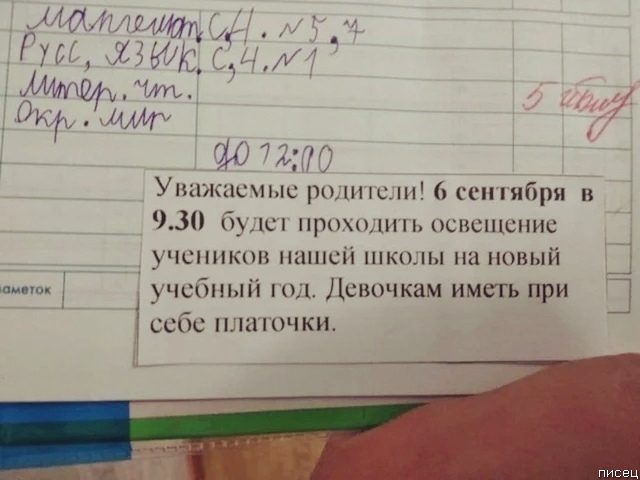 Математ. С,4. №5,7
Русс, язык. С,4.№1
Литер. чт.
Окр. мир
5
до 12:00
Уважаемые родители! 6 сентября в
9.30 будет проходить освещение
учеников нашей школы на новый
учебный год. Девочкам иметь при
себе платочки.
аметок
писец